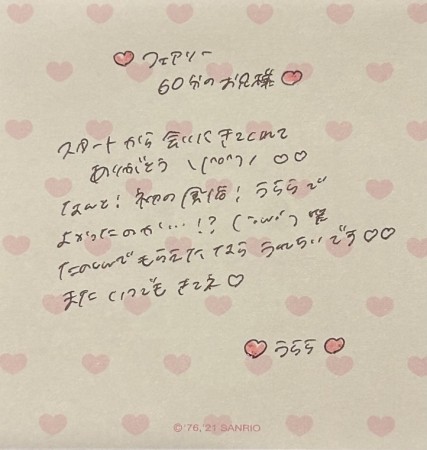 ♡ フェアリー
60分のお兄様 ♡
スタートから 会いにきてくれて
ありがとう \(^o^)/ ♡♡
なんと! 初の
! うららで
よかったのか…!? (;ω;)
たのしんでもらえたなら うれしいです♡♡
また いつでも きてネ♡
♡ うらら ♡
©'76,'21 SANRIO